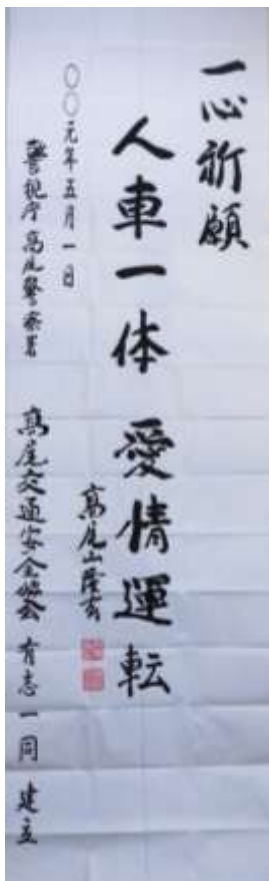 一心祈願
人車一体 愛情運転
高尾山隆玄
〇〇元年五月一日
警視庁高尾警察署 高尾交通安全協会 有志一同 建立